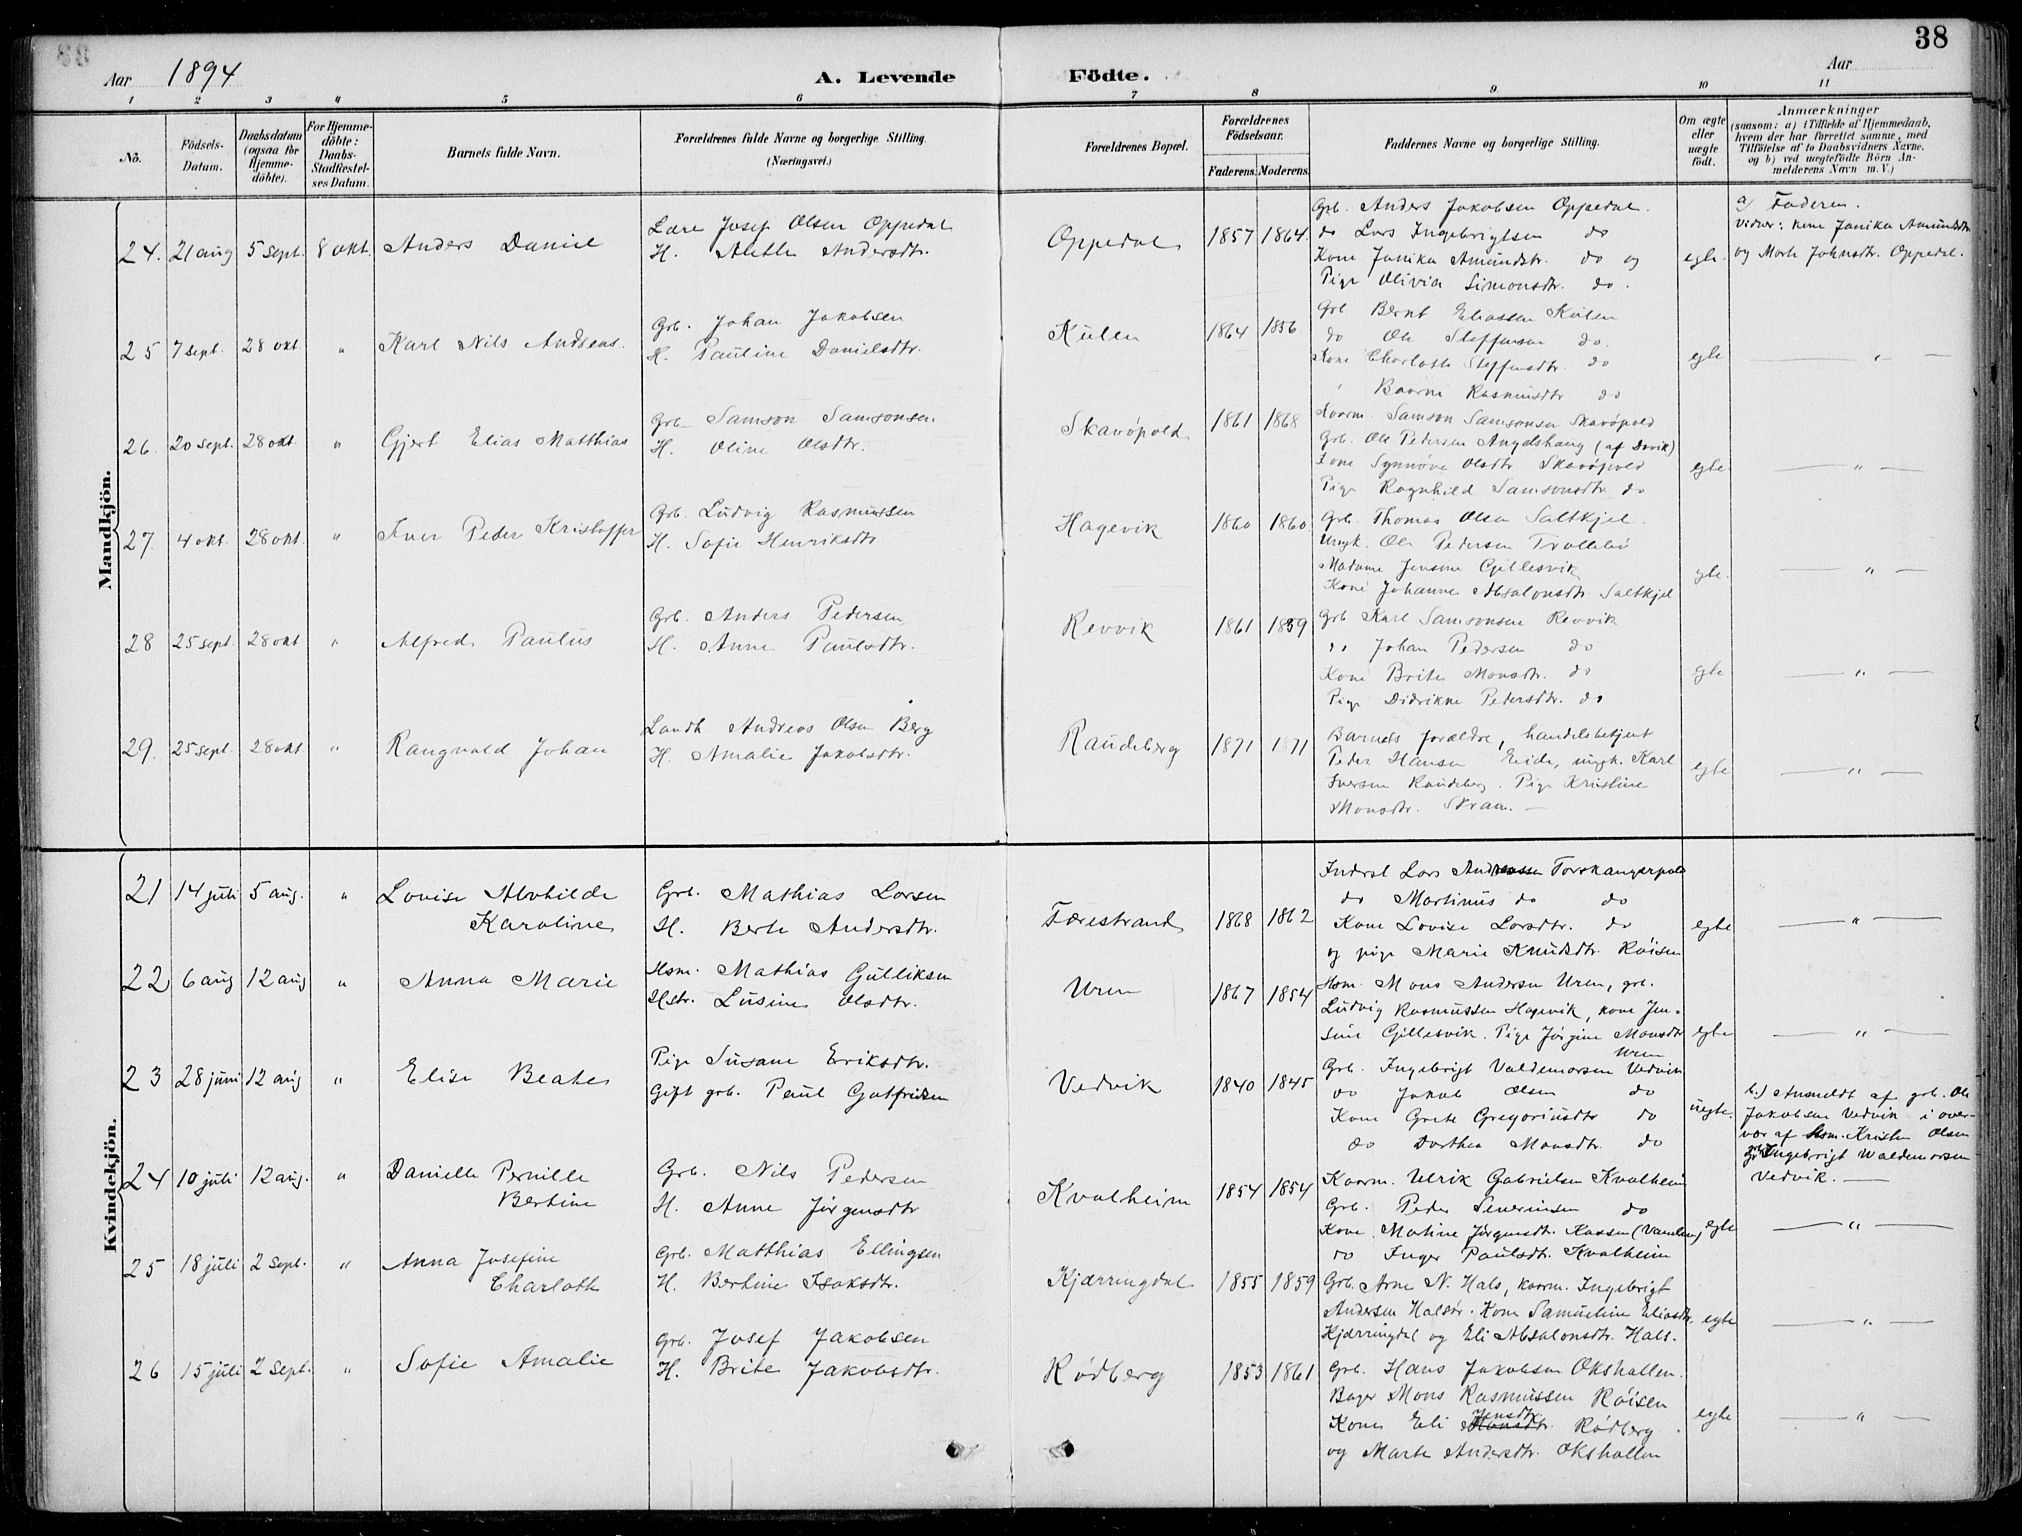 38
Aar 1894
A. Levende Födte.
Aar
1 2 3 4 5 6 7 8 9 10 11
No.
Födsels-Datum.
Daabsdatum (ogsaa for Hjemme-döbte).
For Hjemme-döbte: Daabs-Stadfæstel-ses Datum.
Barnets fulde Navn.
Forældrenes fulde Navne og borgerlige Stilling. (Næringsvei.)
Forældrenes Bopæl.
Forældrenes Födselsaar.
Faderens. Moderens.
Faddernes Navne og borgerlige Stilling.
Om ægte eller uægte födt.
Anmærkninger
(saasom: a) i Tilfælde af Hjemmedaab, hvem der har forrettet samme, med Tilföielse af to Daabsvidners Navne, og b) ved uægtefödte Börn An-melderens Navn m.V.)
Mandkjön.
24. 21 aug 5 sept. 8 okt. Anders Daniel
Josef Olsen Oppedal
H. Alethe Andersdtr.
Oppedal 1857 1864
Grb. Anders Jakobsen Oppedal.
do Lars Ingebrigtsen do
Kone Janika Amundstr. do og
Pige Olivia Simonsdtr. do.
egte.
a) Faderen.
Vidner: kone Janika Amundstr
og Marte Johnsdtr. Oppedal.
25 7 sept. 28 okt " Karl Nils Andreas.
Grb. Johan Jakobsen
H. Pauline Danielsdtr.
Kulen 1864 1856
Grb Bernt Eliassen Kulen
do Ole Steffensen do.
Kone Charlotte Steffensdtr. do
" Rasmusdtr do
egte — " —
26. 20 sept. 28 okt. " Gjert Elias Matthias
Grb. Samson Samsonsen.
H. Oline Olsdtr.
Skavøpold 1861 1868
Kaarm. Samson Samsonsen Skavøpold
Grb. Ole Pedersen Angelshaug (af Davik)
Kone Synnøve Olsdtr Skavøpold
Pige Ragnhild Samsonsdtr. do
egte — " —
27. 4 okt. 28 okt " Iver Peder Kristoffer
Grb. Ludvig Rasmussen
H. Sofie Henriksdtr.
Hagevik 1860 1860
Grb. Thomas Olsen Saltkjel.
Ungk. Ole Pedersen Trollebø
Madame Jensine Gillesvik
Kone Johanne Absalonsdtr Saltkjel
egte. — " —
28 25 sept. 28 okt " Alfred Paulus
Grb. Anders Pedersen
H. Anne Paulsdtr.
Revvik 1861 1859
Grb Karl Samsonsen Revvik
do Johan Pedersen do
Kone Brite Monsdtr. do
Pige Didrikne Pedersdtr. do
egte — " —
29. 25 sept. 28 okt " Rangvald Johan
Landh Andreas Olsen Berg
H. Amalie Jakobsdtr.
Raudeberg 1871 1871
Barnets forældre, handelsbetjent
Peder Hansen Eide, ungk. Karl
Iversen Raudeberg. Pige Kristine
Monsdtr. Skram. —
egte — " —
Kvindekjön.
21 14 juli 5 aug. " Lovise Alvhilde
Karoline
Grb. Mathias Larsen
H. Berte Andersdtr.
Færestrand 1868 1862
Inderst Lars Andreassen Torskangerpold
do Martinus do do
Kone Lovise Larsdtr. do
og pige Marie Knudsdtr Røisen
egte — " —
22 6 aug 12 aug " Anna Marie
Hsm. Mathias Gulliksen
Hstr. Lusine Olsdtr.
Uren 1867 1854
Hsm. Mons Andersen Uren, grb.
Ludvig Rasmussen Hagevik, kone Jen-
sine Gillesvik. Pige Jørgine Monsdtr
Uren
egte — " —
23 28 juni 12 aug " Elise Beate
Pige Susane Eriksdtr.
Gift grb. Paul Gotfridsen
Vedvik 1840 1845
Grb. Ingebrigt Valdemarsen Vedvik
do Jakob Olsen do
Kone Grete Gregoriusdtr do
do Dorthea Monsdtr. do
uegte.
b.) Anmeldt af grb. Ole
Jakobsen Vedvik i over-
vær af Hsm. Kristen Olsen
grb Ingebrigt Waldemarsen
Vedvik. —
24 10 juli 12 aug. " Danielle Pernille
Bertine
Grb. Nils Pedersen
H. Anne Jørgensdtr
Kvalheim 1854 1854
Kaarm. Ulrik Gabrielsen Kvalheim
Grb. Peder Severinsen do
Kone Matine Jørgensdtr.
do Inger Paulsdtr. Kvalheim
egte — " —
25 18 juli 2 sept. " Anna Josefine
Charlotte
Grb. Matthias Ellingsen
H. Bertine Isaksdtr.
Kjærringdal 1855 1859
Grb. Arne N. Hals, kaarm. Ingebrigt
Andersen Halsør. Kone Samueline Eliasdtr.
Kjærringdal og Eli Absalonsdtr. Hals.
egte — " —
26 15 juli 2 sept. " Sofie Amalie
Grb. Josef Jakobsen
H. Brite Jakobsdtr.
Rødberg 1853 1861
Grb. Hans Jakobsen Okshallen.
Bager Mons Rasmussen Røisen
Kone Eli Jensdtr. Rødberg
og Marte Andersdtr. Okshallen
egte — " —